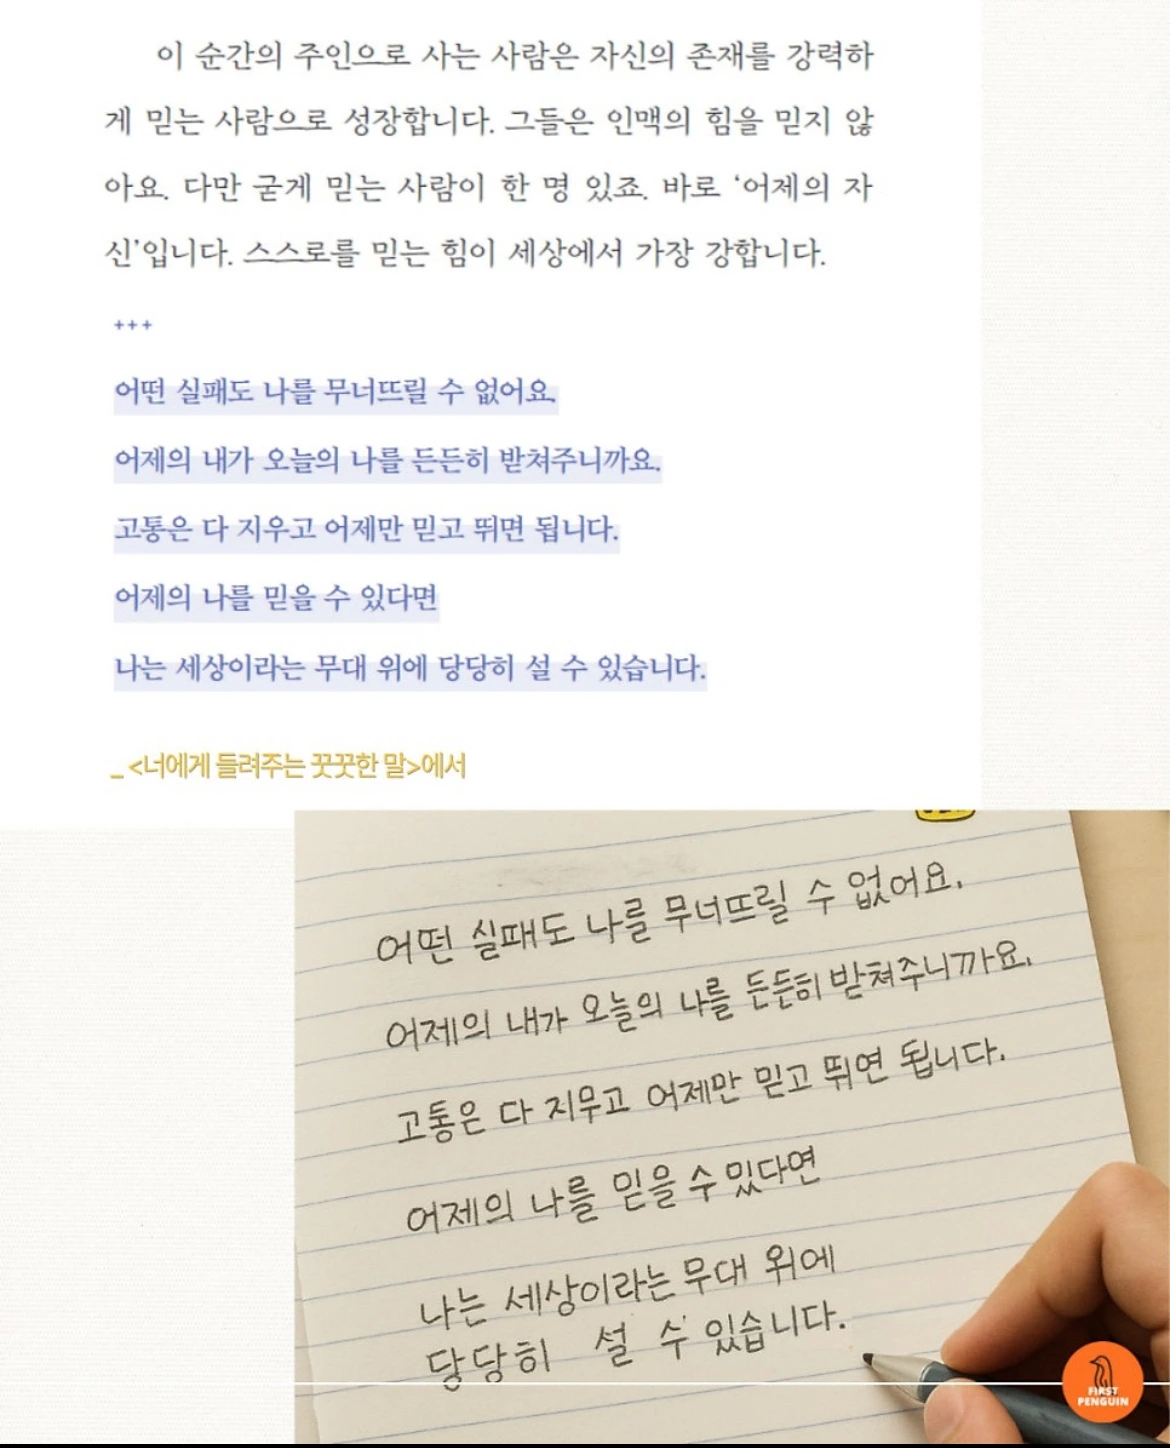 이 순간의 주인으로 사는 사람은 자신의 존재를 강력하
게 믿는 사람으로 성장합니다. 그들은 인맥의 힘을 믿지 않
아요. 다만 굳게 믿는 사람이 한 명 있죠. 바로 ‘어제의 자
신’입니다. 스스로를 믿는 힘이 세상에서 가장 강합니다.
+++
어떤 실패도 나를 무너뜨릴 수 없어요.
어제의 내가 오늘의 나를 든든히 받쳐주니까요.
고통은 다 지우고 어제만 믿고 뛰면 됩니다.
어제의 나를 믿을 수 있다면
나는 세상이라는 무대 위에 당당히 설 수 있습니다.
_ <너에게 들려주는 꿋꿋한 말>에서
어떤 실패도 나를 무너뜨릴 수 없어요.
어제의 내가 오늘의 나를 든든히 받쳐주니까요.
고통은 다 지우고 어제만 믿고 뛰면 됩니다.
어제의 나를 믿을 수 있다면
나는 세상이라는 무대 위에
당당히 설 수 있습니다.
FIRST
PENGUIN